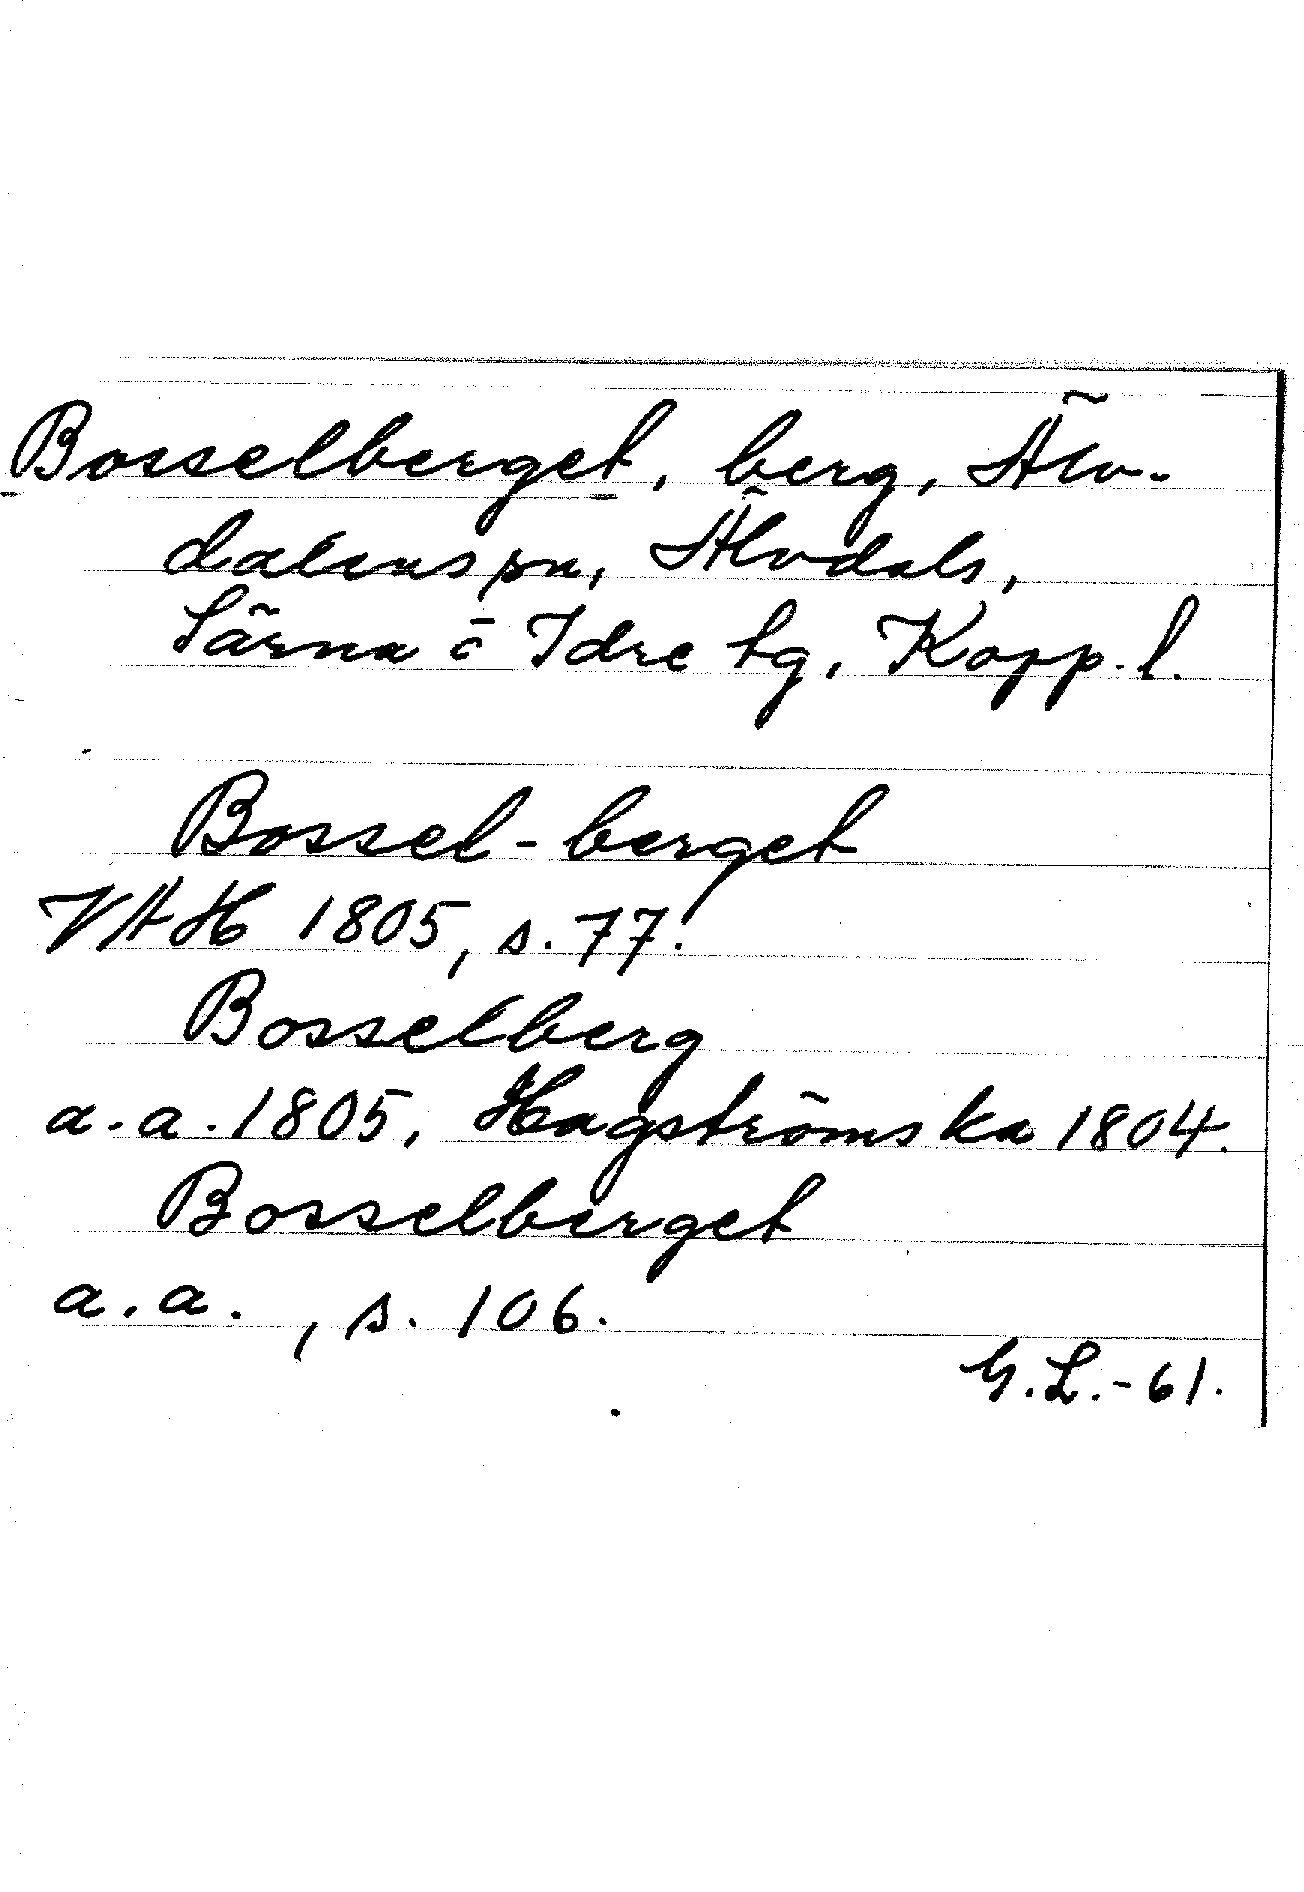 Bosselberget, berg, Älv-
dalens sn, Älvdals,
Särna o Idre tg, Kopp. l.
Bossel-berget
VAH 1805, s. 77.
Bosselberg
a.a. 1805, Hagströms ka 1804.
Bosselberget
a.a. , s. 106.
G.L.-61.